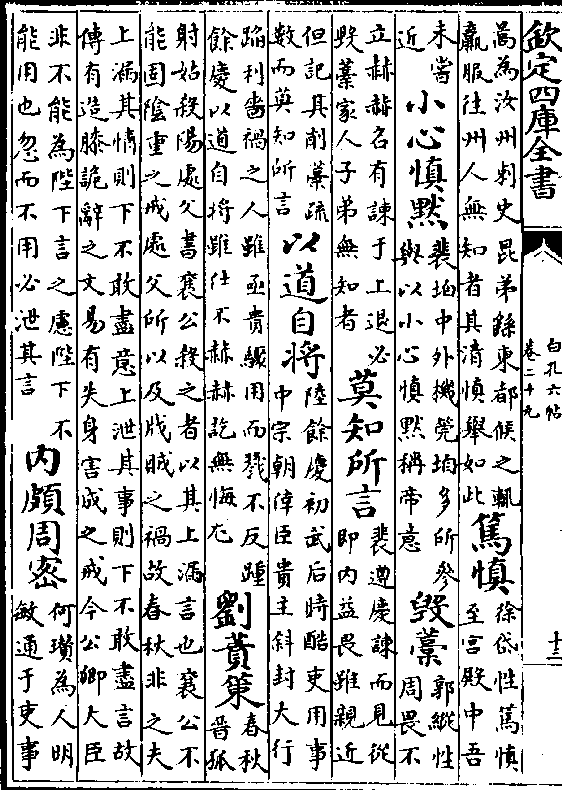 欽定四庫全書
白孔六帖
卷二十九
十二
暠為汝州刺史昆弟繇東都候之輒
羸服往州人無知者其清慎舉如此
篤慎
徐岱性篤慎
至宮殿中吾
未嘗
近
小心慎默
裴垍中外機筦垍多所參
與以小心慎默稱帝意
毀藁
郭縱性
周畏不
立赫赫名有諫于上退必
毀藁家人子弟無知者
莫知所言
裴遵慶諫而見從
即内益畏雖親近
但記其削藁疏
數而莫知所言
以道自將
陸餘慶初武后時酷吏用事
中宗朝倖臣貴主斜封大行
蹈利嗇禍之人雖亟貴驟用而戮不反踵
餘慶以道自將雖仕不赫赫訖無悔尤
劉蕡策
春秋
晉狐
射姑殺陽處父書襄公殺之者以其上漏言也襄公不
能固陰重之戒處父所以及戕賊之禍故春秋非之夫
上漏其情則下不敢盡意上泄其事則下不敢盡言故
傳有造膝詭辭之文易有失身害成之戒今公卿大臣
非不能為陛下言之慮陛下不
能用也忽而不用必泄其言
内頗周密
何瓚為人明
敏通于吏事